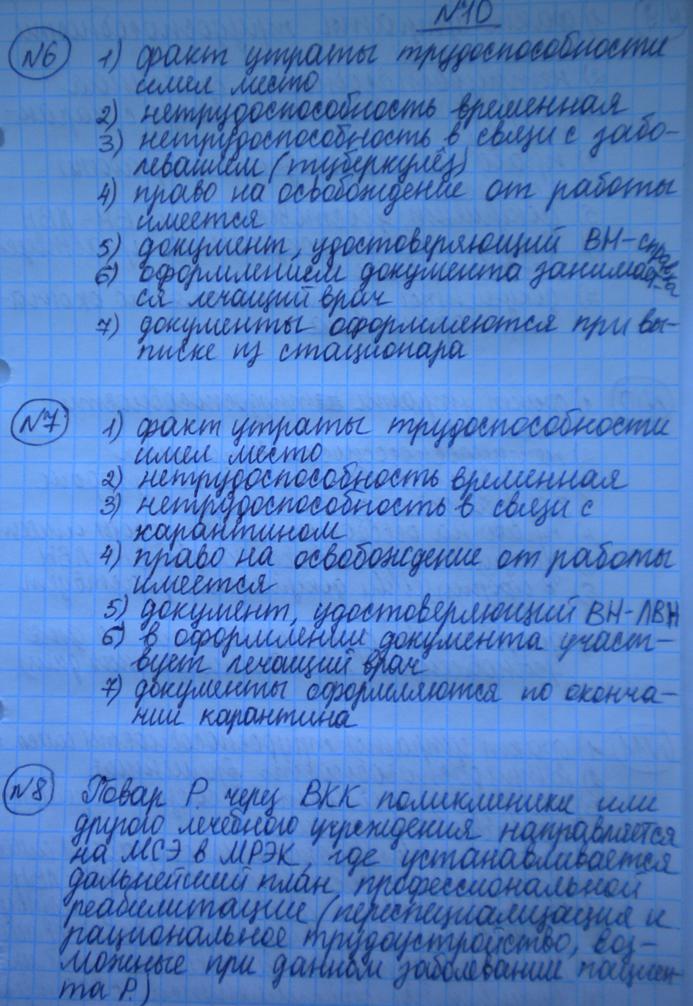 №10
№6 1) факт утраты трудоспособности
имел место
2) нетрудоспособность временная
3) нетрудоспособность в связи с забо-
леванием (туберкулёз)
4) право на освобождение от работы
имеется
5) документ, удостоверяющий ВН-справка
6) оформлением документа занимает-
ся лечащий врач
7) документы оформляются при вы-
писке из стационара
№7 1) факт утраты трудоспособности
имел место
2) нетрудоспособность временная
3) нетрудоспособность в связи с
карантином
4) право на освобождение от работы
имеется
5) документ, удостоверяющий ВН-ЛВН
6) в оформлении документа участ-
вует лечащий врач
7) документы оформляются по оконча-
нии карантина
№8 Повар Р. через ВКК поликлиники или
другого лечебного учреждения направляется
на МСЭ в МРЭК, где устанавливается
дальнейший план профессиональной
реабилитации (переспециализация и
рациональное трудоустройство, воз-
можные при данном заболевании пациен-
та Р.)